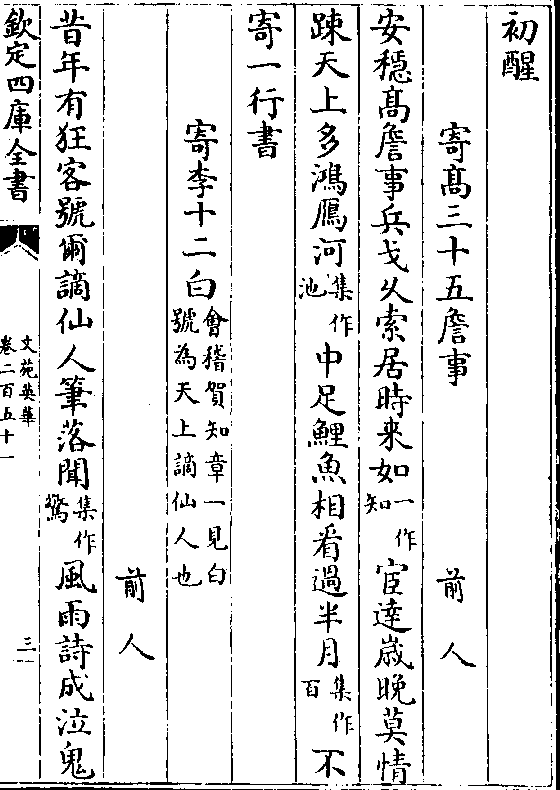 初醒
寄髙三十五詹事
前人
安穩髙詹事兵戈乆索居時来如一作知宦達嵗晚莫情
踈天上多鴻鴈河集作池中足鯉魚相看過半月集作百不
寄一行書
寄李十二白㑹稽賀知章一見白號為天上謫仙人也
前人
昔年有狂客號爾謫仙人筆落聞集作驚風雨詩成泣鬼
欽定四庫全書
文苑英華
卷二百五十一
三